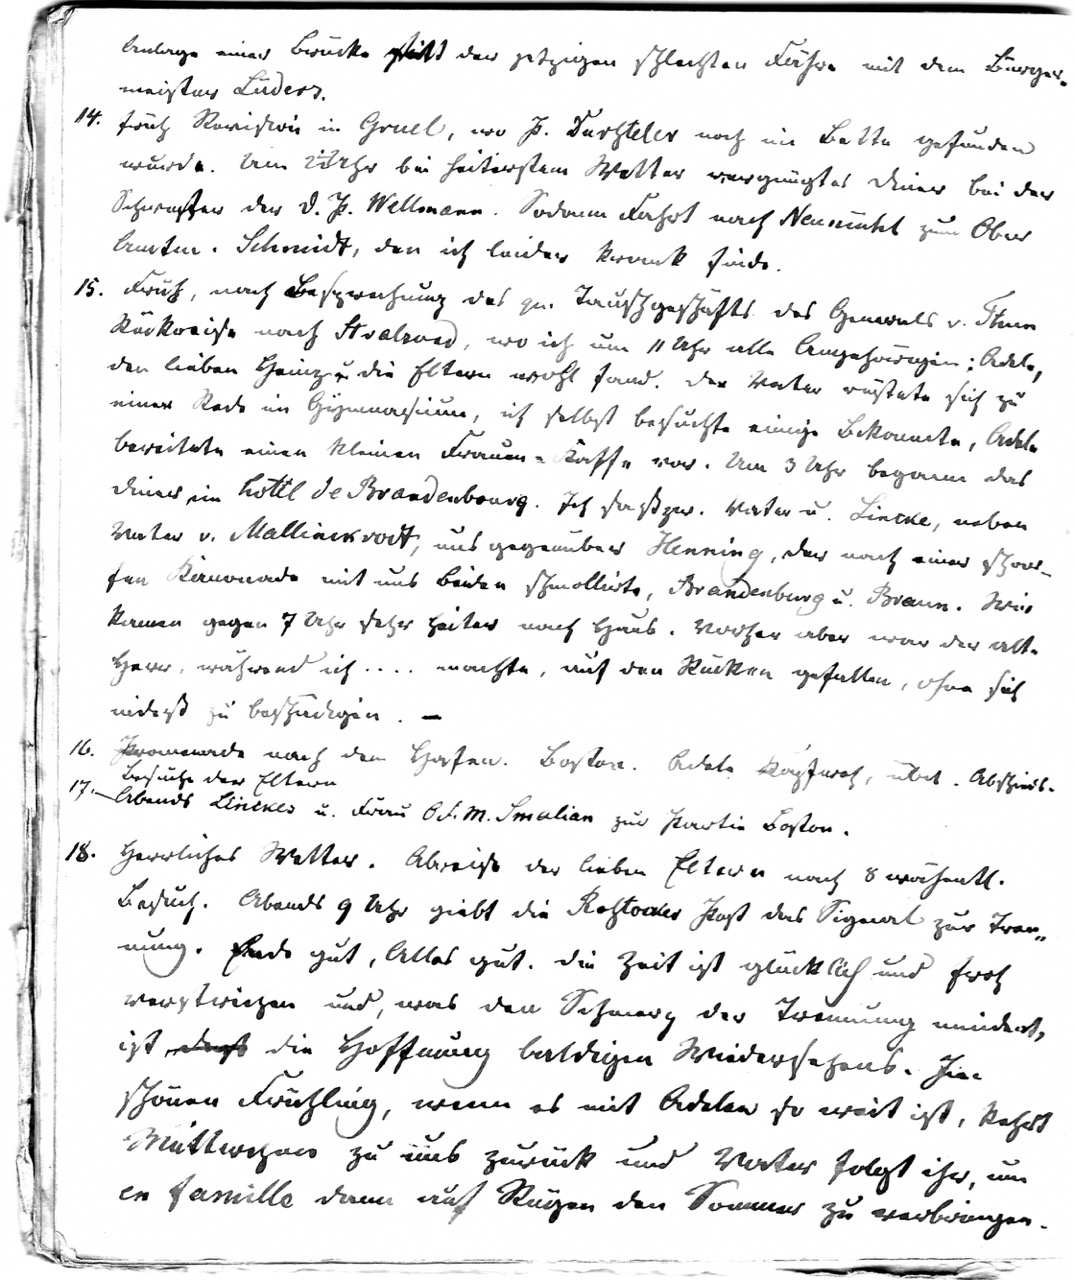 Anlage einer Brücke statt der jetzigen schlechten Fähre mit dem Bürger-
meister Lüders.
14. Früh Revision in Gruel, wo P. noch im Bette gefunden
wurde. Um 2 Uhr bei heiterstem Wetter vergnügtes Diner bei der
Schwester der D. P. Wellmann. Sodann Fahrt nach zum Ober
Amtm. Schmidt, den ich leider krank finde.
15. Früh, nach Besprechung des qu. Tauschgeschäfts des Generals v.
Rückreise nach Stralsund, wo ich um 11 Uhr alle Angehörigen: Adele,
den lieben Heinz u. die Eltern wohl fand. Der Vater rüstete sich zu
einer Rede im Gymnasium, ich selbst besuchte einige Bekannte, Adele
bereitete einen kleinen Frauen-Kaffe vor. Um 3 Uhr begann das
Diner im hotêl de Brandenbourg. Ich saß zw. Vater u. Lincke, neben
Vater v. Mallinckrodt, uns gegenüber Henning, der nach einer schar-
fen Kanonade mit uns beiden schmollirte, Brandenburg u. Braun. Wir
kamen gegen 7 Uhr sehr heiter nach Haus. Vorher aber war der alte
Herr, während ich .... machte, auf den Rücken gefallen, ohne sich
indeß zu beschädigen. —
16. Promenade nach dem Hafen. Boston. Adele Kopfweh, übel. Abschieds-
Besuche der Eltern
17. Abends Linckes u. Frau O.F.M. Smalian zur Partie Boston.
18. Herrliches Wetter. Abreise der lieben Eltern nach 8 wöchentl.
Besuch. Abends 9 Uhr giebt die Rostocker Post das Signal zur Tren-
nung. Ende gut, Alles gut. Die Zeit ist glücklich und froh
verstrichen und, was den Schmerz der Trennung mindert,
ist die Hoffnung baldigen Wiedersehens. Im
schönen Frühling, wenn es mit Adelen so weit ist, kehrt
Mütterchen zu uns zurück und Vater folgt ihr, um
en famille dann auf Rügen den Sommer zu verbringen.